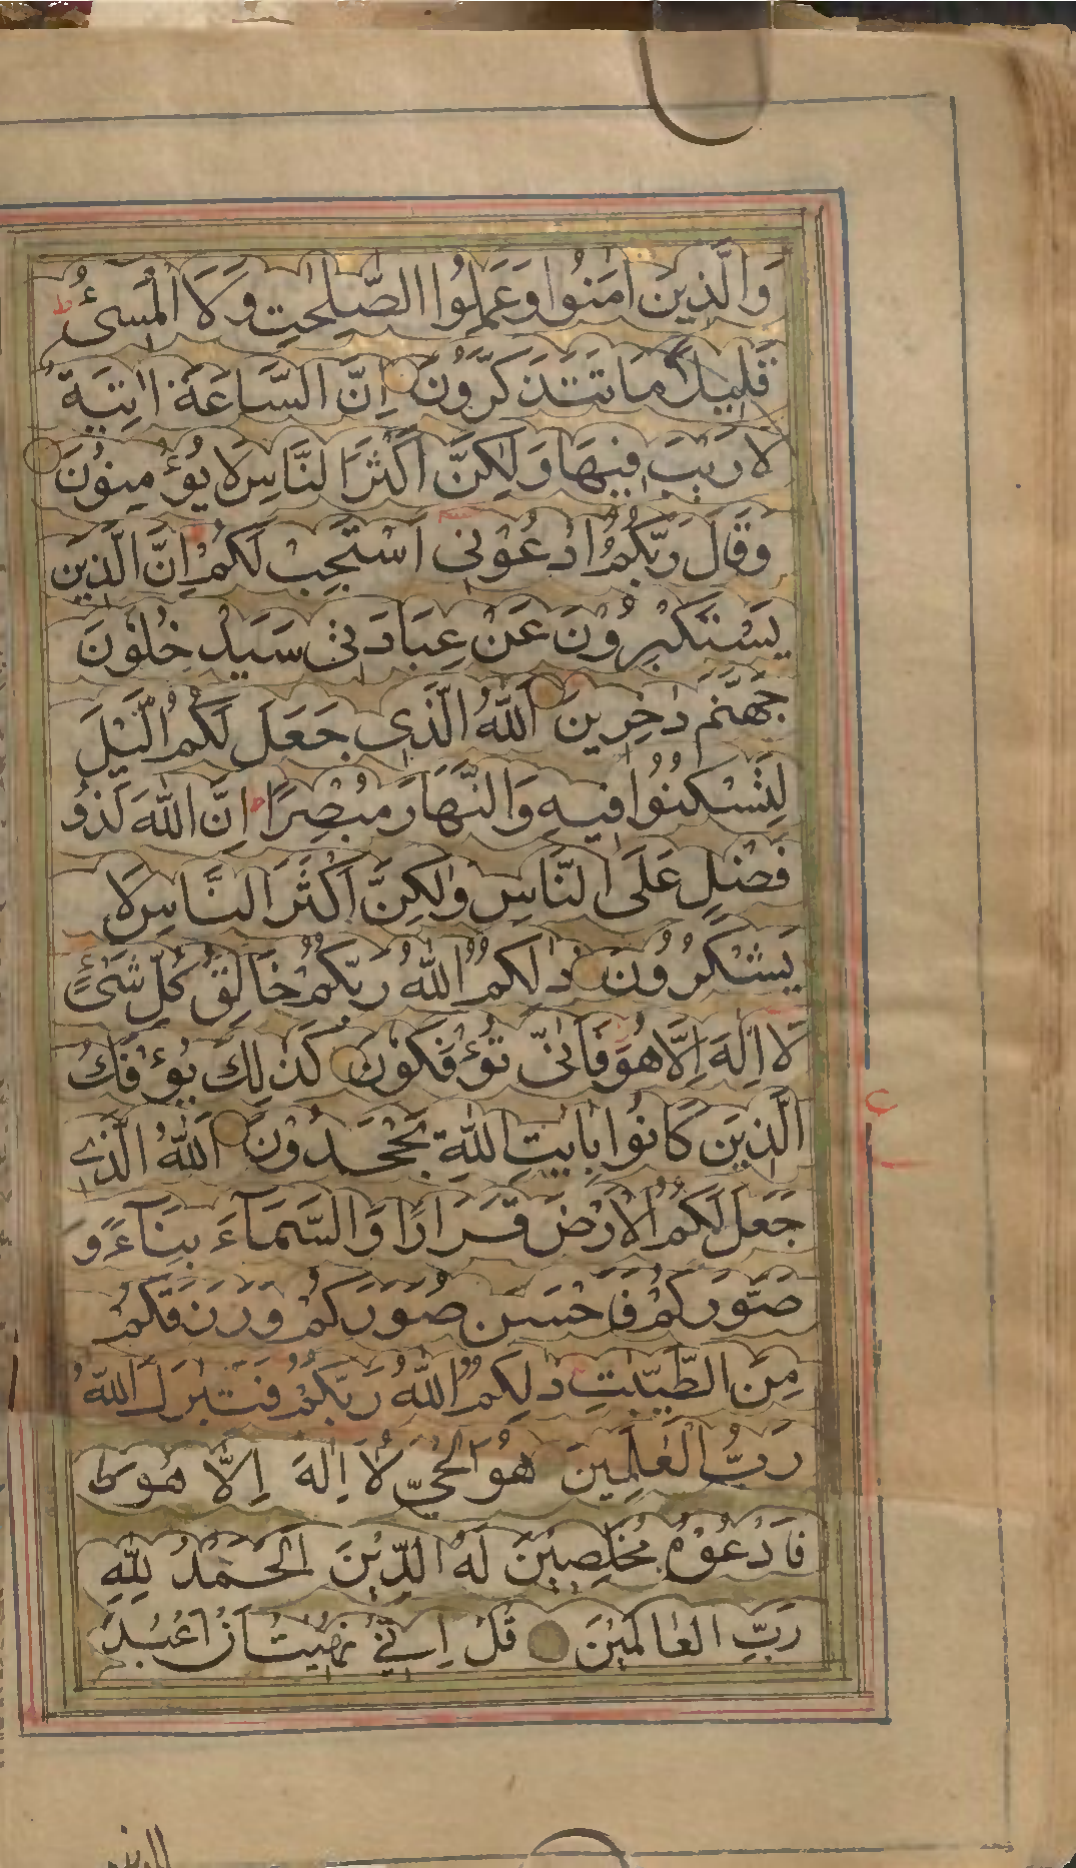 وَالَّذِينَ اٰمَنُوا وَعَمِلُوا الصّٰلِحٰتِ وَلَا الْمُسِىءُ ط
قَلِيلًا مَا تَتَذَكَّرُونَ اِنَّ السَّاعَةَ اٰتِيَةٌ
لَا رَيْبَ فِيهَا وَلٰكِنَّ اَكْثَرَ النَّاسِ لَا يُؤْمِنُونَ
وَقَالَ رَبُّكُمُ ادْعُوْنِى اَسْتَجِبْ لَكُمْ اِنَّ الَّذِينَ
يَسْتَكْبِرُوْنَ عَنْ عِبَادَتِىْ سَيَدْخُلُوْنَ
جَهَنَّمَ دٰخِرِينَ اَللّٰهُ الَّذِى جَعَلَ لَكُمُ الَّيْلَ
لِتَسْكُنُوْا فِيهِ وَالنَّهَارَ مُبْصِرًا ط اِنَّ اللّٰهَ لَذُو
فَضْلٍ عَلَى النَّاسِ وَلٰكِنَّ اَكْثَرَ النَّاسِ لَا
يَشْكُرُوْنَ ذٰلِكُمُ اللّٰهُ رَبُّكُمْ خَالِقُ كُلِّ شَىْءٍ
لَا اِلٰهَ اِلَّا هُوَ فَاَنّٰى تُؤْفَكُوْنَ كَذٰلِكَ يُؤْفَكُ
الَّذِينَ كَانُوا بِاٰيٰتِ اللّٰهِ يَجْحَدُوْنَ اَللّٰهُ الَّذِى
جَعَلَ لَكُمُ الْاَرْضَ قَرَارًا وَالسَّمَآءَ بِنَآءً وَ
صَوَّرَكُمْ فَاَحْسَنَ صُوَرَكُمْ وَرَزَقَكُمْ
مِنَ الطَّيِّبٰتِ ذٰلِكُمُ اللّٰهُ رَبُّكُمْ فَتَبٰرَكَ اللّٰهُ
رَبُّ الْعٰلَمِينَ هُوَ الْحَىُّ لَا اِلٰهَ اِلَّا هُوَ ط
فَادْعُوْهُ مُخْلِصِيْنَ لَهُ الدِّيْنَ اَلْحَمْدُ لِلّٰهِ
رَبِّ الْعَالَمِيْنَ قُلْ اِنِّىْ نُهِيْتُ اَنْ اَعْبُدَ
الذين